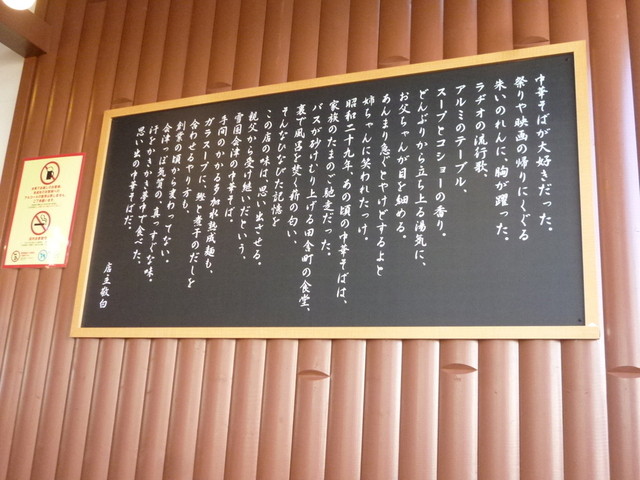 中華そばが大好きだった。
祭りや映画の帰りにくぐる
朱いのれんに、胸が躍った。
ラヂオの流行歌、
アルミのテーブル
スープとコショーの香り。
どんぶりから立ち上る湯気に、
お父ちゃんが目を細める。
あんまり急ぐとやけどするよと
姉ちゃんに笑われたっけ。
昭和二十九年、あの頃の中華そばは、
家族のたまのご馳走だった。
バスが砂けむり上げる田舎町の食堂、
裏で風呂を焚く薪の匂い、
そんなひなびた記憶を
この店の味は、思い出させる。
親父から受け継いだという、
雪国会津の中華そば。
手間のかかる多加水熟成麺も、
ガラスープに、鰹と煮干のだしを
合わせるやり方も、
創業の頃から変わってない。
会津っぽ気質の、真っすぐな味。
汗をかきかき夢中で食べた、
思い出の中華そばだ。
店主敬白